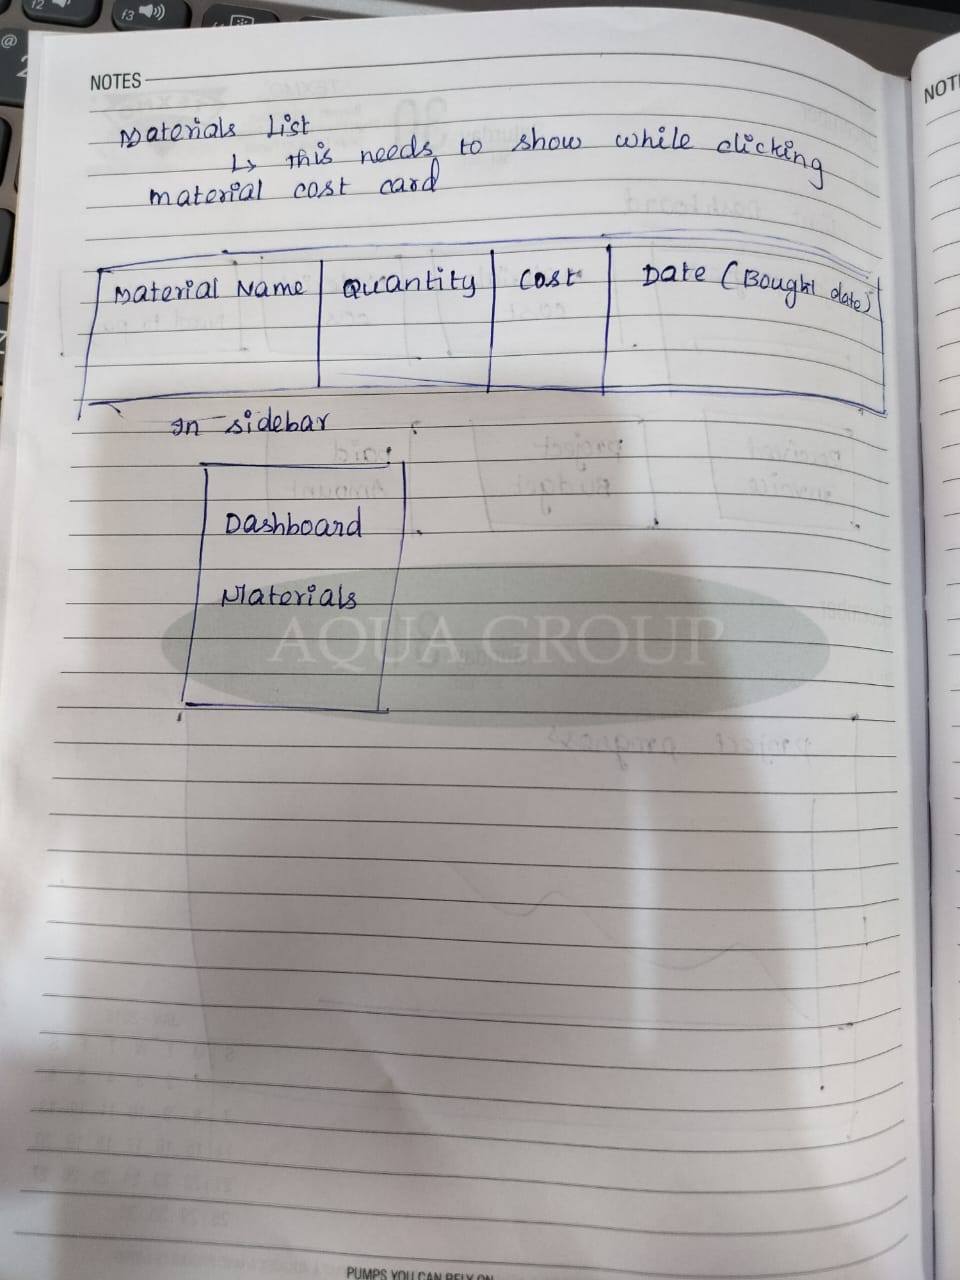 NOTES
NOTE
Materials List
↳ this needs to show while clicking
material cost card
Material Name | Quantity | Cost | Date (Bought date)
In sidebar
Dashboard
Materials
AQUA GROUP
PUMPS YOU CAN RELY ON